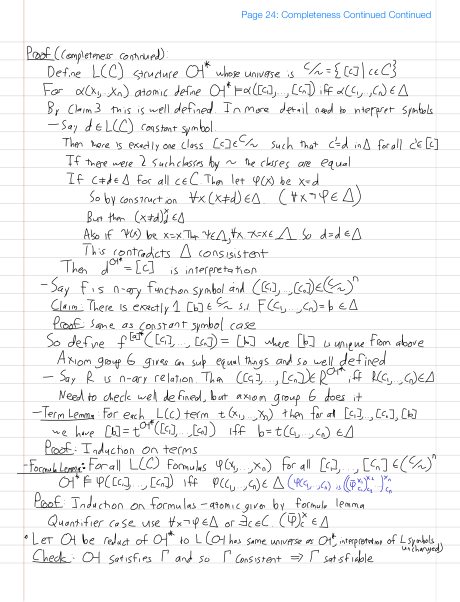 Page 24: Completeness Continued Continued
Proof (Completeness continued):
Define L(C) structure 𝔄* whose universe is C/~ = {[c] | c∈C}
For α(x₁,..,xₙ) atomic define 𝔄* ⊨ α([c₁],..,[cₙ]) iff α(c₁,..,cₙ)∈Δ
By Claim 3 this is well defined. In more detail need to interpret symbols
– Say d∈L(C) constant symbol.
Then there is exactly one class [c]∈C/~ such that c'=d in Δ for all c'∈[c]
If there were 2 such classes by ~ the classes are equal
If c≠d∈Δ for all c∈C. Then let φ(x) be x=d
So by construction ∀x(x≠d)∈Δ (∀x¬φ∈Δ)
But then (x≠d)ˣ_d∈Δ
Also if ψ(x) be x=x Then ψ∈Δ, ∀x x=x∈Δ So d=d∈Δ
This contradicts Δ consistent
Then d^𝔄* = [c] is interpretation
– Say f is n-ary function symbol and ([c₁],..,[cₙ])∈(C/~)ⁿ
Claim: There is exactly 1 [b]∈C/~ s.t F(c₁,..,cₙ)=b∈Δ
Proof: Same as constant symbol case
So define f^𝔄*([c₁],..,[cₙ]) = [b] where [b] is unique from above
Axiom group 6 gives can sub equal things and so well defined
– Say R is n-ary relation. Then ([c₁],..,[cₙ])∈R^𝔄* iff R(c₁,..,cₙ)∈Δ
Need to check well defined, but axiom group 6 does it
– Term Lemma: For each L(C) term t(x₁,..,xₙ) then for all [c₁],..,[cₙ],[b]
we have [b]=t^𝔄*([c₁],..,[cₙ]) iff b=t(c₁,..,cₙ)∈Δ
Proof: Induction on terms
– Formula Lemma: For all L(C) Formulas φ(x₁,..,xₙ) for all [c₁],..,[cₙ]∈(C/~)ⁿ
𝔄* ⊨ φ([c₁],..,[cₙ]) iff φ(c₁,..,cₙ)∈Δ
Proof: Induction on formulas – atomic given by formula lemma
Quantifier case use ∀x¬φ∈Δ or ∃c∈C. (φ)ˣ_c∈Δ
• Let 𝔄 be reduct of 𝔄* to L (𝔄 has same universe as 𝔄*, interpretation of L symbols unchanged)
Check: 𝔄 satisfies Γ and so Γ consistent ⟹ Γ satisfiable